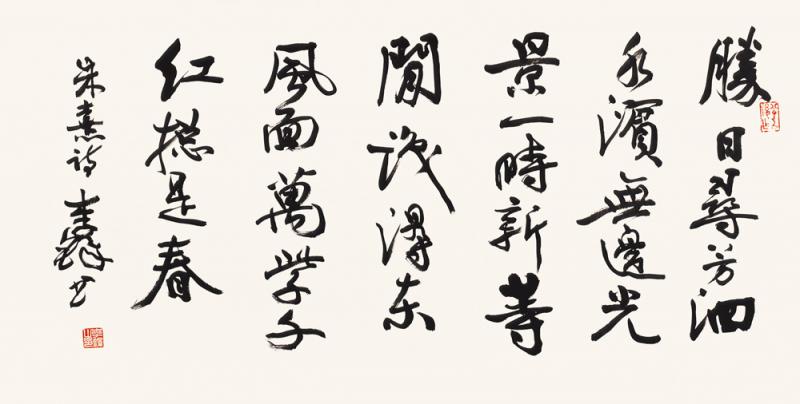 勝日尋芳泗
水濱無邊光
景一時新等
閒識得东
風面萬紫千
红摠是春
朱熹诗 李鐸书